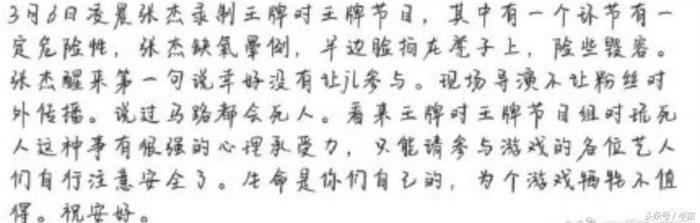 3月6日凌晨张杰录制王牌对王牌节目,其中有一个环节有一
定危险性,张杰缺氧晕倒,半边脸拍在凳子上,险些毁容。
张杰醒来第一句说幸好没有让jl参与。现场导演不让粉丝对
外传播。说过马路都会死人。看来王牌对王牌节目组对玩死
人这种事有很强的心理承受力,只能请参与游戏的各位艺人
们自行注意安全了。生命是你们自己的,为个游戏牺牲不值
得。祝安好。
头条号/